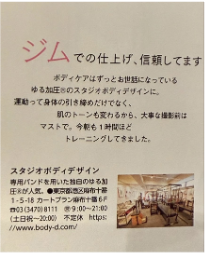 ジムでの仕上げ、信頼してます
ボディケアはずっとお世話になっている
ゆる加圧®のスタジオボディデザインに。
運動って身体の引き締めだけでなく、
肌のトーンも変わるから、大事な撮影前は
マストで。今朝も1時間ほど
トレーニングしてきました。
スタジオボディデザイン
専用バンドを用いた独自のゆる加
圧®が人気。●東京都港区麻布十番
1-5-18 カートブラン麻布十番6F
☎03(3470)8111 ㊡9:00~21:00
(土日祝~20:00) 不定休 https:
//www.body-d.com/